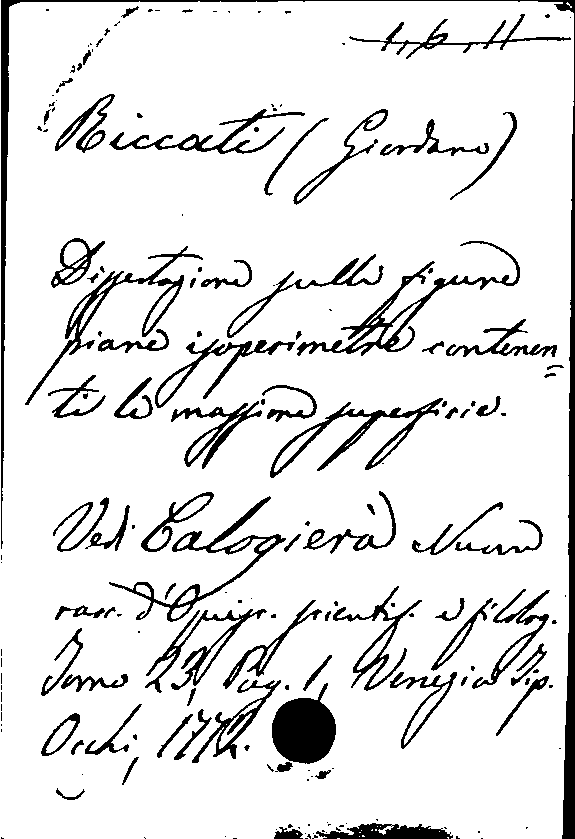 1, 6, 11
Riccati (Giordano)
Dissertazione sulle figure
piane isoperimetre contenen=
ti le massime superficie.
Vedi Calogierà Nuova
racc. d'Opusc. scientif. e filolog.
Tomo 23, Pag. 1, Venezia Tip.
Occhi, 1772.